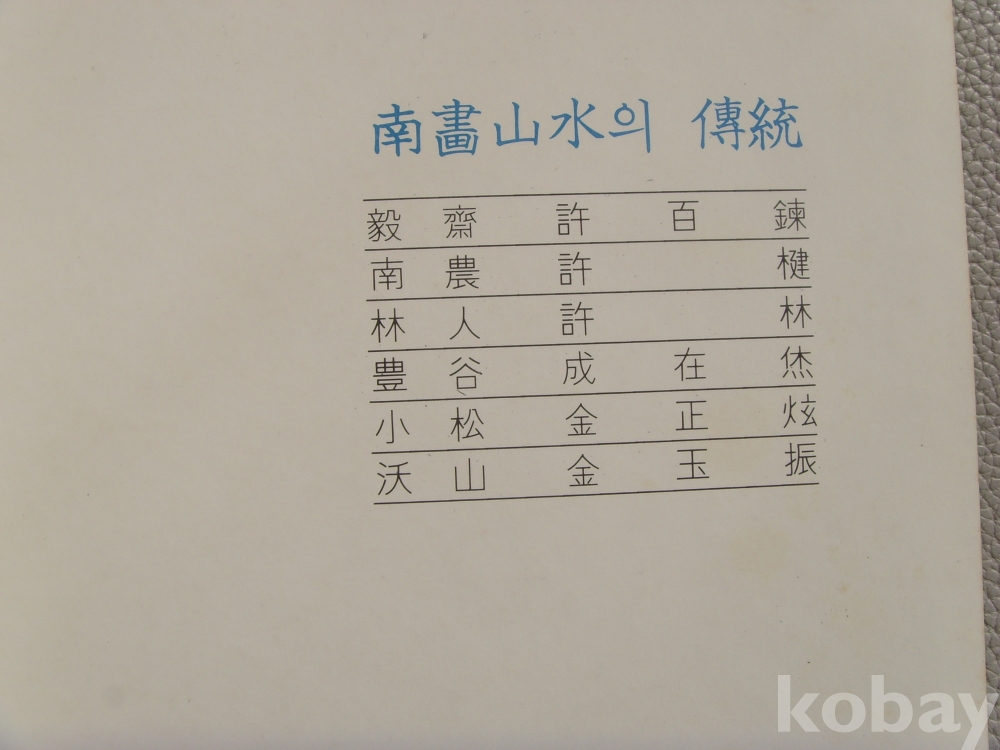 南畵山水의 傳統
毅齋 許百鍊
南農 許楗
林人 許林
豊谷 成在烋
小松 金正炫
沃山 金玉振
kobay